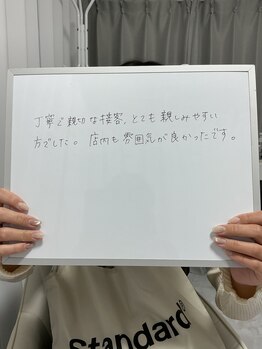 丁寧で親切な接客、とても親しみやすい
方でした。店内も雰囲気が良かったです。
Standard